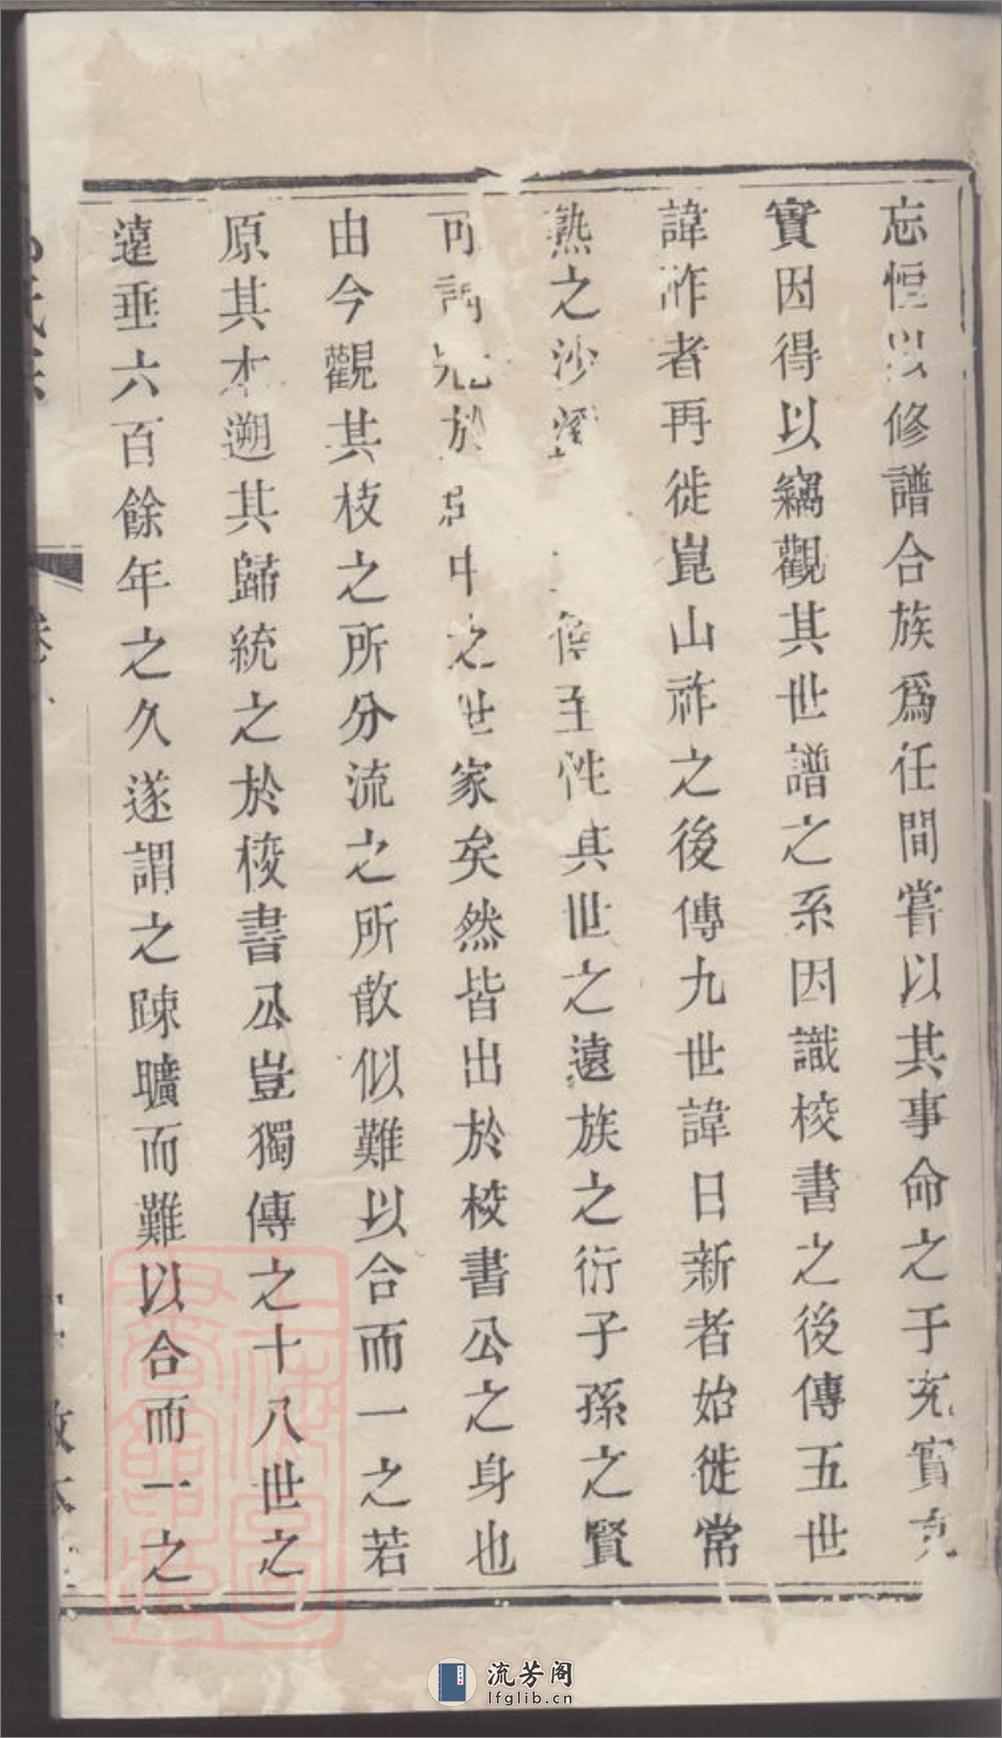 忘恒以修譜合族爲任間嘗以其事命之于充實充
實因得以竊觀其世譜之系因識校書之後傳五世
諱祚者再徙崑山祚之後傳九世諱日新者始徙常
熟之沙 傳至性其世之遠族之衍子孫之賢
可謂 於 中之世家矣然皆出於校書公之身也
由今觀其枝之所分流之所散似難以合而一之若
原其本遡其歸統之於校書公豈獨傳之十八世之
遠垂六百餘年之久遂謂之踈曠而難以合而一之
卷
敦本
流芳阁
lfglib.cn